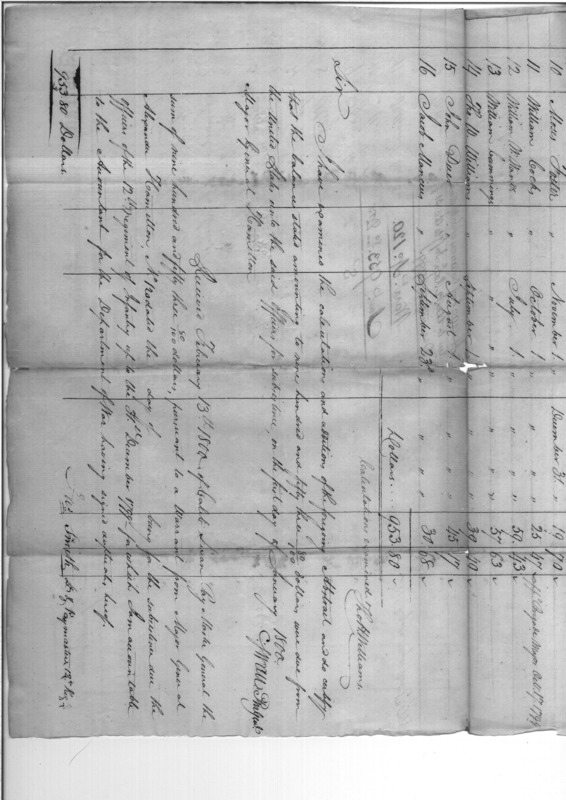 10 Moses Foster " November 1 " December 31. " 19 70
11 William Cocks " October 1 " " " 25 47
12 William W. Wands " July 1. " " " 59 43
13 William Cummings " " " " " 54 63
14 Tho. W. Williams " September 1 " " " 39 40
15 John Duer " August 1. " " " 45 17
16 Jacob Mancius " September 23d " " " 30 68
Dollars... 953 80
Calculations examined Tho W Williams
Sir
I have examined the calculations and additions of the foregoing Abstract and do certify
that the balances stated amounting to nine hundred and fifty three 80/100 dollars, were due from
the United States unto the said Officers for subsistence, on the first day of January 1800.
Major General Hamilton
Received February 13th 1800, of Caleb Swan Pay Master General the
sum of nine hundred and fifty three 80/100 dollars, pursuant to a Warrant from Major General
Alexander Hamilton, No. dated the day of being for the subsistence due the
officers of the 12th regiment of Infantry up to the 31st December 1799, for which I am accountable
to the Accountant for the Department of War having signed duplicates hereof.
953 80 Dollars.
Wm. Smith, Lt. & Paymaster 12th Regt.